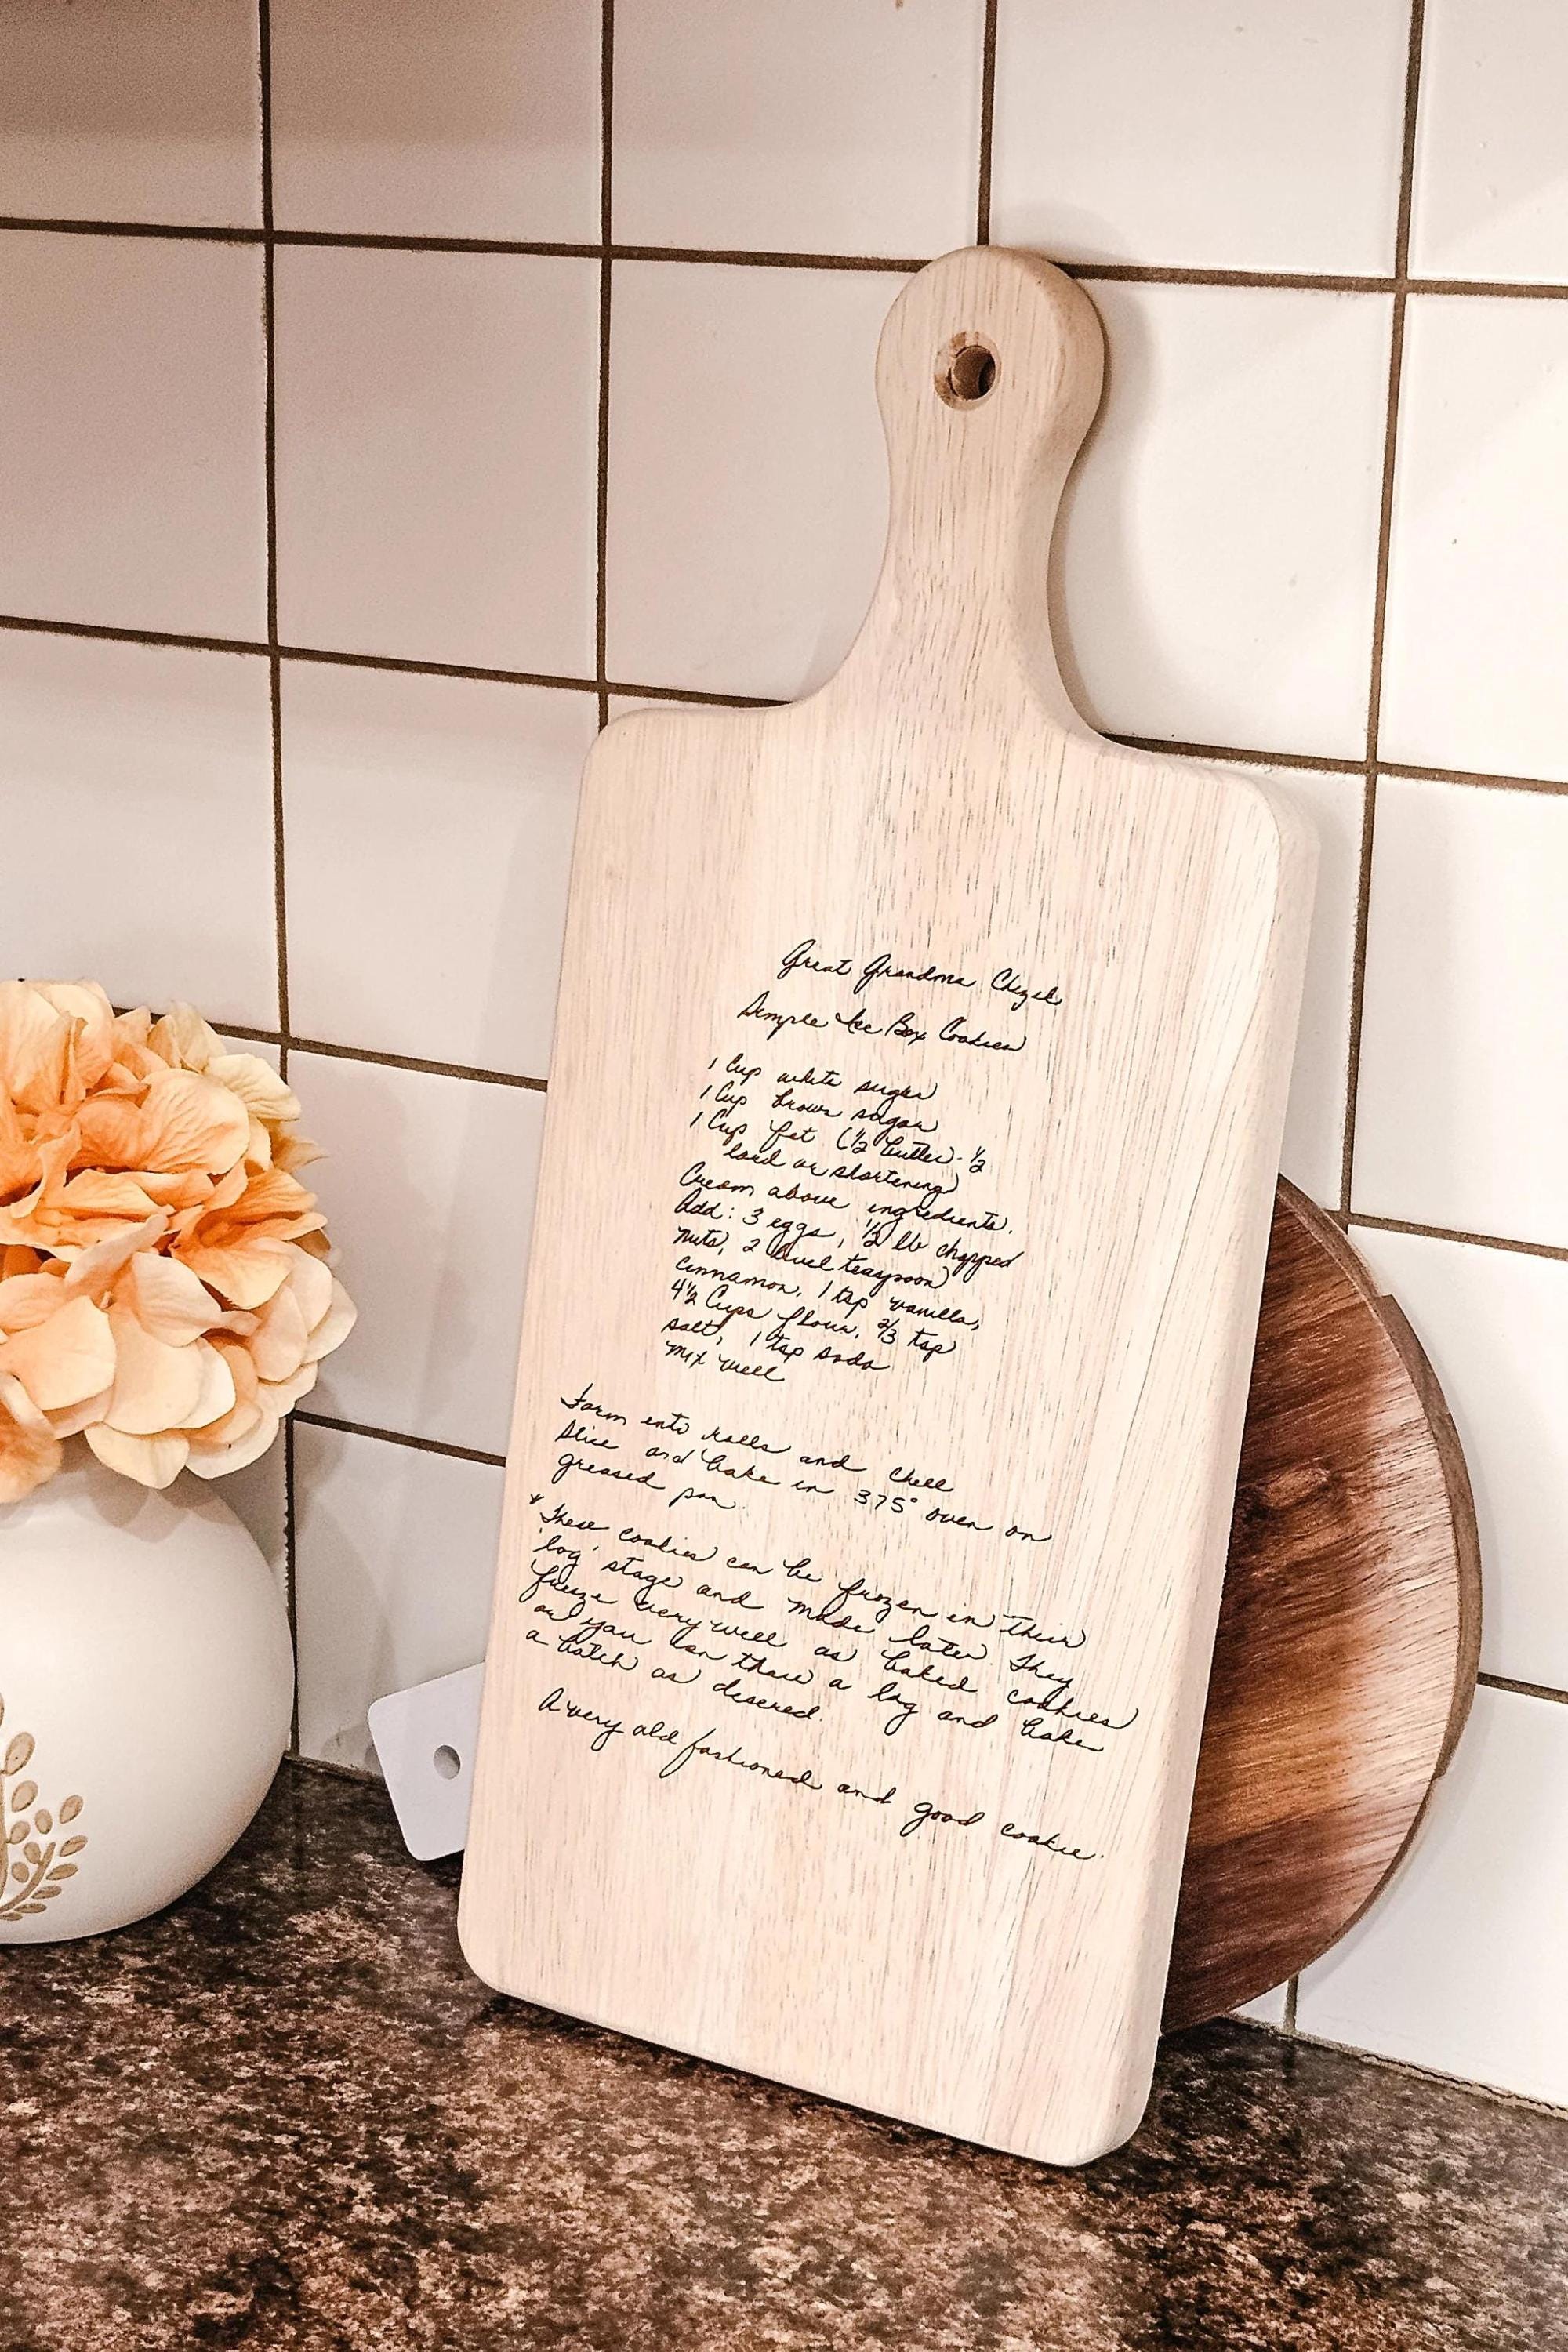 Great Grandma Chezek
Simple Ice Box Cookies
1 Cup white sugar
1 Cup brown sugar
1 Cup fat (½ butter) - ½
lard or shortening)
Cream above ingredients.
Add: 3 eggs, ½ lb chopped
nuts, 2 level teaspoon
cinnamon, 1 tsp vanilla,
4½ Cups flour, ⅔ tsp
salt, 1 tsp soda
mix well
Form into rolls and chill
Slice and bake in 375° oven on
greased pan.
* These cookies can be frozen in their
log stage and made later. They
freeze very well as baked cookies
or you can thaw a log and bake
a batch as desired.
A very old fashioned and good cookie.